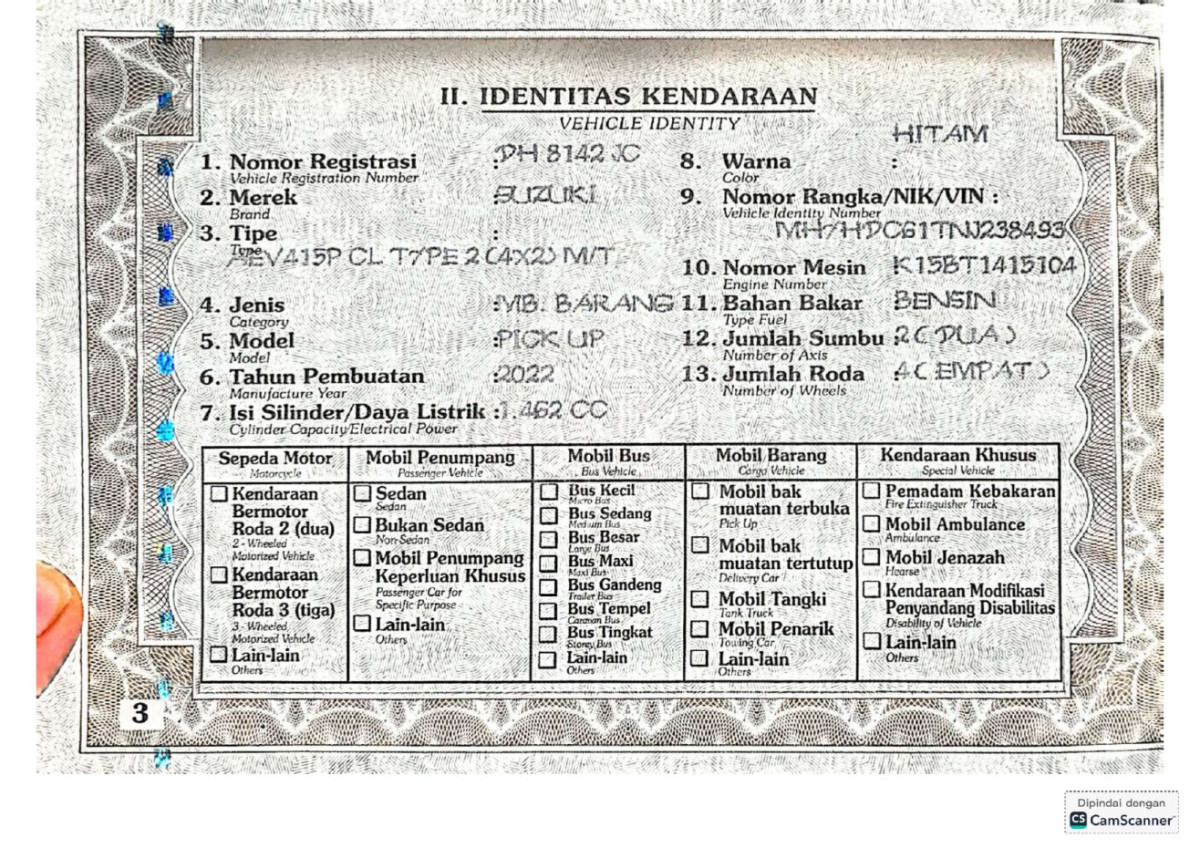 II. IDENTITAS KENDARAAN
VEHICLE IDENTITY
1. Nomor Registrasi : DH 8142 JC
Vehicle Registration Number
2. Merek : SUZUKI
Brand
3. Tipe :
Type
AEV415P CL TYPE 2 (4X2) M/T
4. Jenis : MB. BARANG
Category
5. Model : PICK UP
Model
6. Tahun Pembuatan : 2022
Manufacture Year
7. Isi Silinder/Daya Listrik : 1.462 CC
Cylinder Capacity/Electrical Power
HITAM
8. Warna :
Color
9. Nomor Rangka/NIK/VIN :
Vehicle Identity Number
MH7HDC61TNJ238493
10. Nomor Mesin K15BT1415104
Engine Number
11. Bahan Bakar BENSIN
Type Fuel
12. Jumlah Sumbu : 2 ( DUA )
Number of Axis
13. Jumlah Roda : 4 ( EMPAT )
Number of Wheels
Sepeda Motor
Motorcycle
Kendaraan
Bermotor
Roda 2 (dua)
2 - Wheeled
Motorized Vehicle
Kendaraan
Bermotor
Roda 3 (tiga)
3 - Wheeled
Motorized Vehicle
Lain-lain
Others
Mobil Penumpang
Passenger Vehicle
Sedan
Sedan
Bukan Sedan
Non-Sedan
Mobil Penumpang
Keperluan Khusus
Passenger Car for
Specific Purpose
Lain-lain
Others
Mobil Bus
Bus Vehicle
Bus Kecil
Micro Bus
Bus Sedang
Medium Bus
Bus Besar
Large Bus
Bus Maxi
Maxi Bus
Bus Gandeng
Trailer Bus
Bus Tempel
Caravan Bus
Bus Tingkat
Storey Bus
Lain-lain
Others
Mobil Barang
Cargo Vehicle
Mobil bak
muatan terbuka
Pick Up
Mobil bak
muatan tertutup
Delivery Car
Mobil Tangki
Tank Truck
Mobil Penarik
Towing Car
Lain-lain
Others
Kendaraan Khusus
Special Vehicle
Pemadam Kebakaran
Fire Extinguisher Truck
Mobil Ambulance
Ambulance
Mobil Jenazah
Hearse
Kendaraan Modifikasi
Penyandang Disabilitas
Disability of Vehicle
Lain-lain
Others
3
Dipindai dengan
CS CamScanner